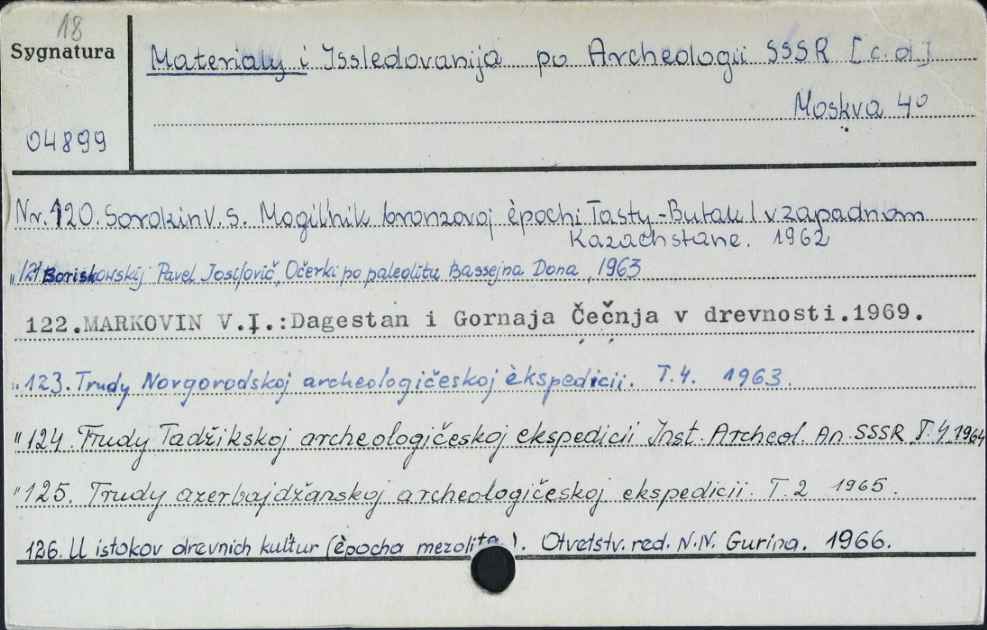 18
Sygnatura
Materialy i Issledovanija po Archeologii SSSR [c.d.]
Moskva 4º
04899
Nr. 120. Sorokin V. S. Mogil'nik bronzovoj èpochi Tasty-Butak I v zapadnom
Kazachstane. 1962
" 121 Boriskowskij Pavel Josifovič, Očerki po paleolitu Bassejna Dona, 1963
122.MARKOVIN V.I.:Dagestan i Gornaja Čečnja v drevnosti.1969.
" 123. Trudy Novgorodskoj archeologičeskoj èkspedicii. T.4. 1963.
" 124. Trudy Tadžikskoj archeologičeskoj ekspedicii Inst. Archeol. An. SSSR T.4 1964
" 125. Trudy azerbajdžanskoj archeologičeskoj ekspedicii. T.2 1965.
126. U istokov drevnich kul'tur (èpocha mezolita). Otvetstv. red. N.N. Gurina. 1966.